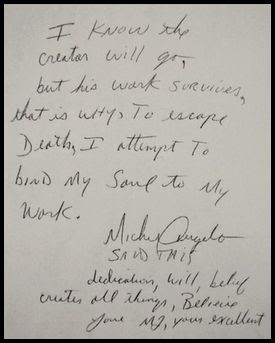 I KNOW the
creator will go,
but his work survives,
that is why, To escape
Death, I attempt To
bind My Soul to My
Work.
Michel Angelo
SAID THIS
dedication, will, belief
creates all things, Believe
your MJ, your excellent